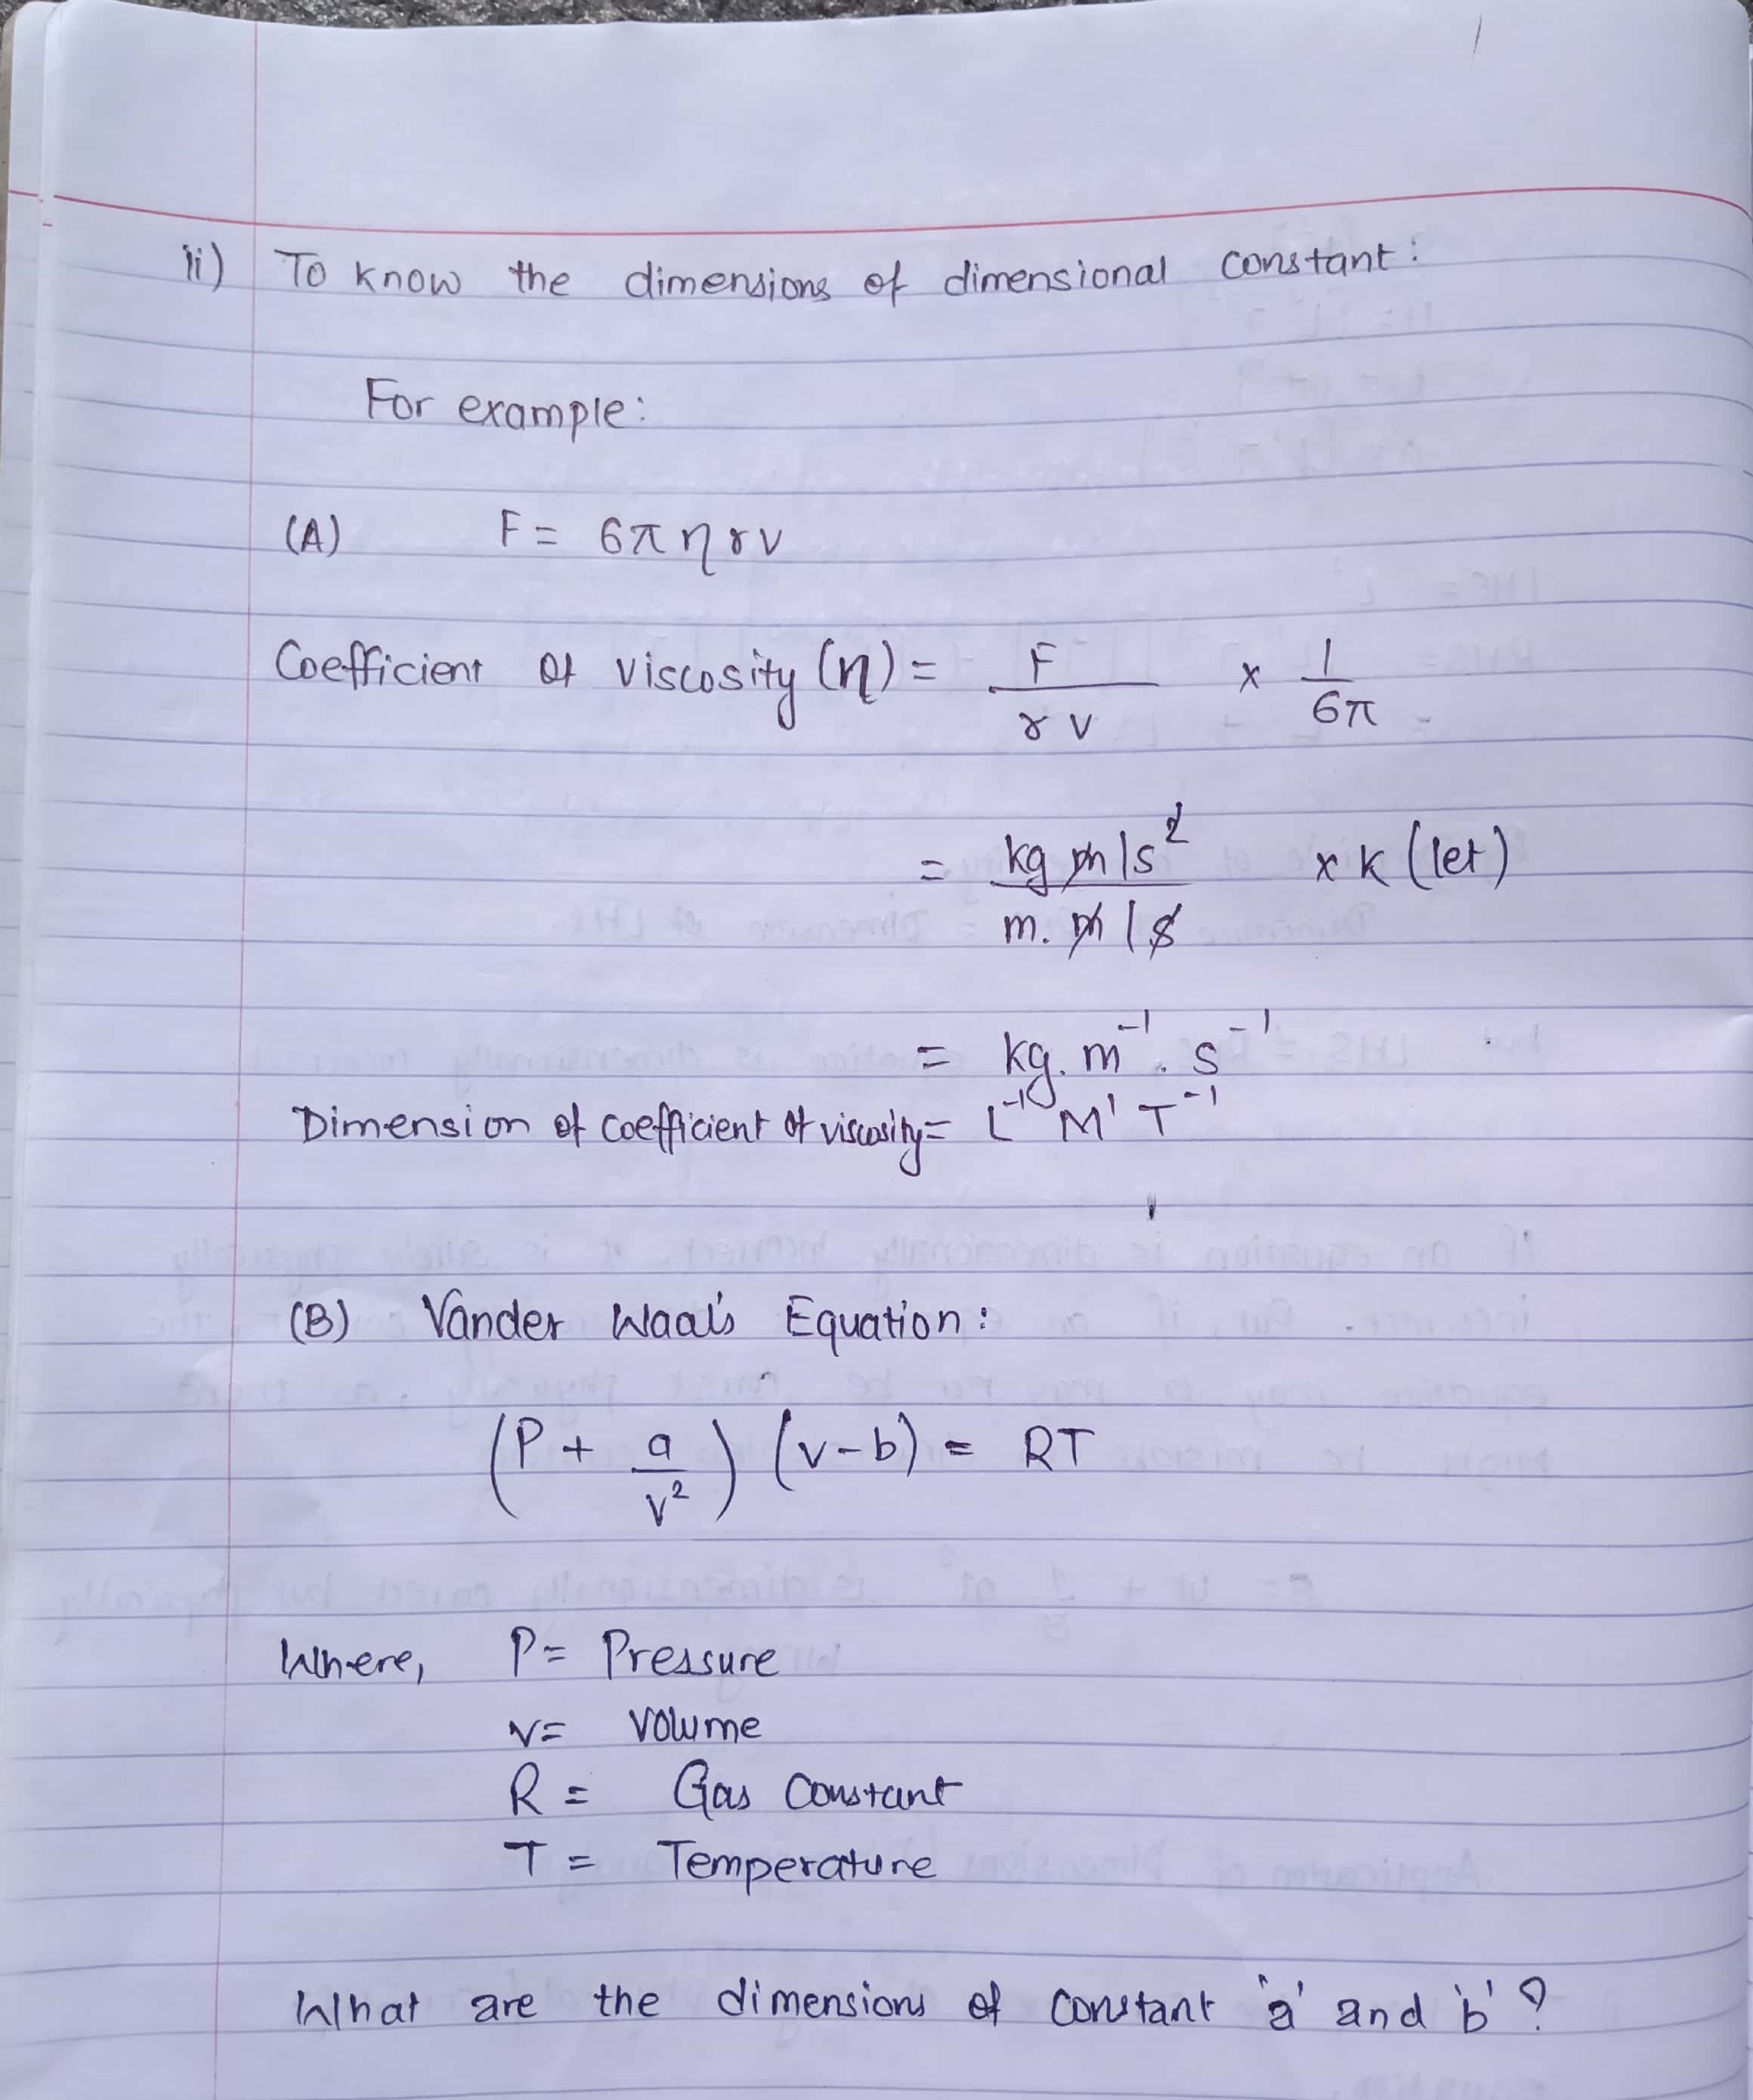 ii) To know the dimensions of dimensional constant:
For example:
(A) F = 6πηrv
Coefficient of viscosity (η) = F / rv × 1 / 6π
= kg m/s² / m. m/s × k (let)
= kg. m⁻¹. s⁻¹
Dimension of coefficient of viscosity = L⁻¹ M¹ T⁻¹
(B) Vander Waal's Equation:
(P + a/v²) (v-b) = RT
Where, P = Pressure
v = volume
R = Gas Constant
T = Temperature
What are the dimensions of constant 'a' and 'b'?